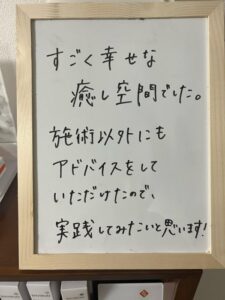 すごく幸せな
癒し空間でした。
施術以外にも
アドバイスをして
いただけたので、
実践してみたいと思います!